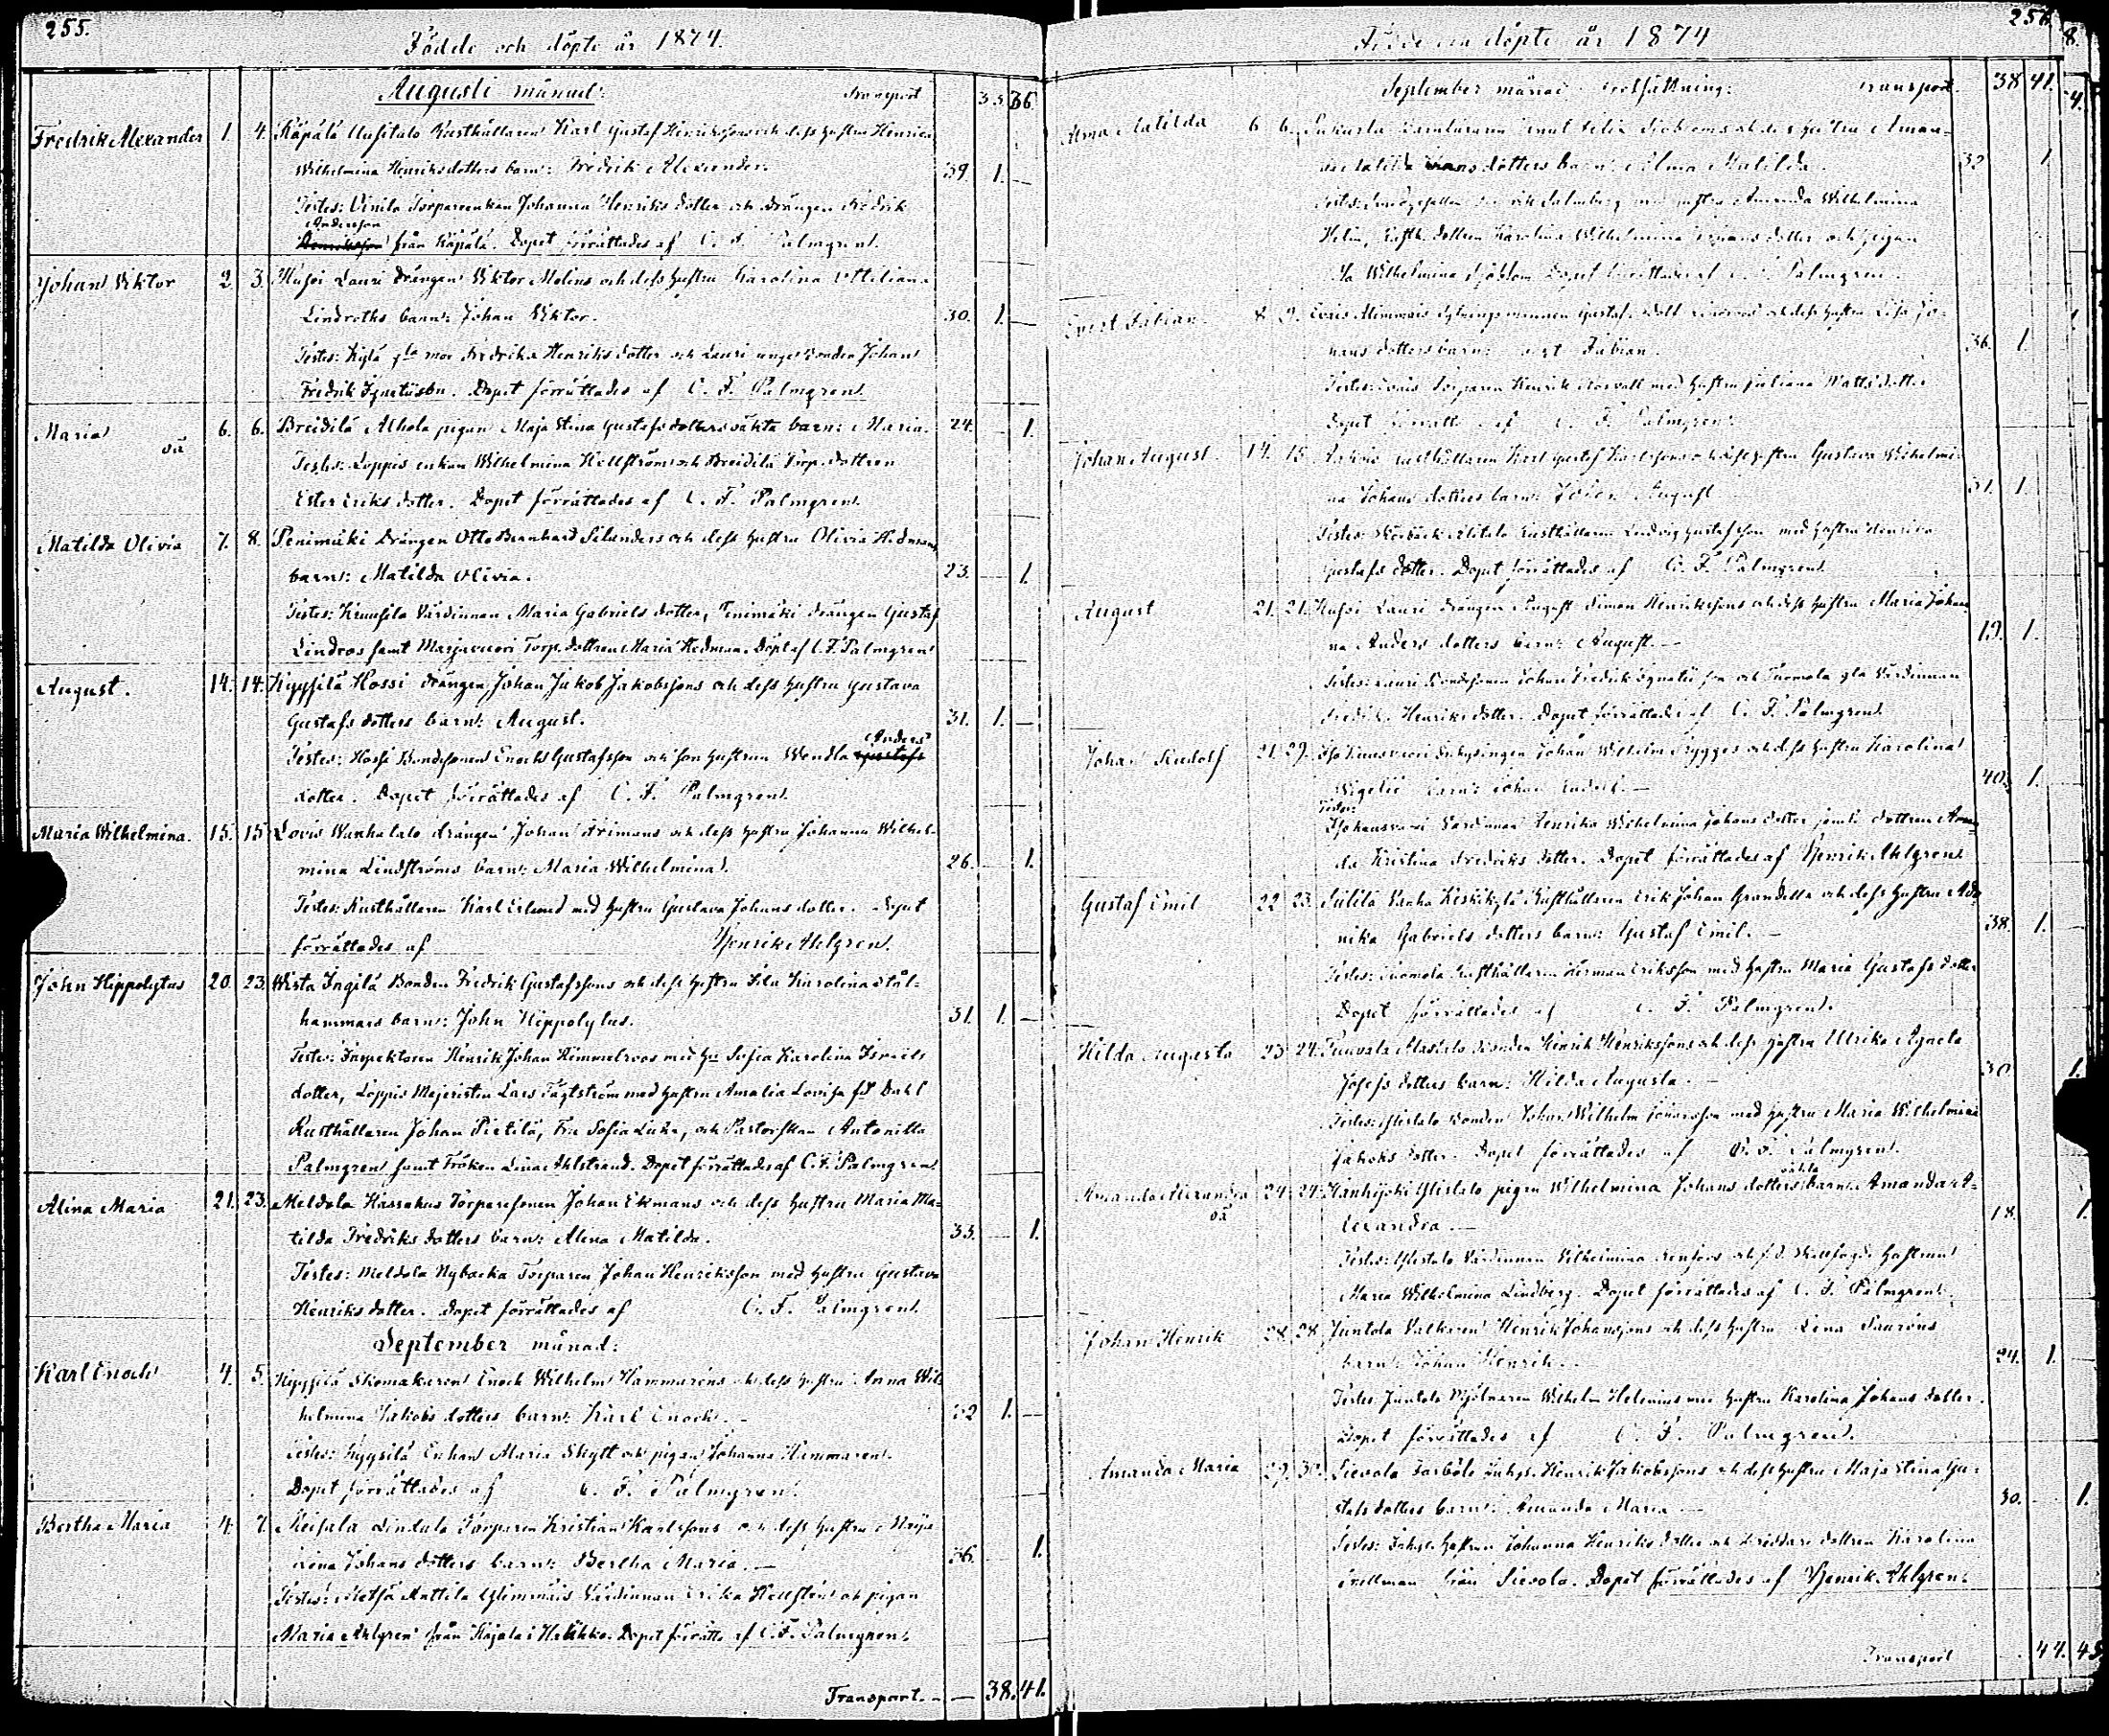 255.
Födde och döpte år 1874.
Augusti månad:
Transport 33. 36.
Fredrik Alexander 1. 4. Käpälä Uusitalo Rusthållaren Karl Gustaf Henrikssons och dess hustru Henrica
Wilhelmina Henriksdotters barn: Fredrik Alexander. 39. 1. —
Testes: Torpareenkan Johanna Henriks dotter och drängen Fredrik
Andersson
Henriksson från Käpälä. Dopet förrättades af C. F. Palmgren.
Johan Viktor 2. 3. Lauri drängen Viktor Molins och dess hustru Karolina Ottiliana
Lindroths barn: Johan Viktor. 30. 1. —
Testes: Kylä gla mor Fredrika Henriks dotter och Lauri unge bonden Johan
Fredrik Ignatiuson. Dopet förrättades af C. F. Palmgren.
Maria oä 6. 6. Breidilä Alhola pigan Maja Stina Gustafsdotters oäkta barn: Maria. 24. 1.
Testes: Loppis enkan Wilhelmina Hellström och Breidilä Torp. dottren
Ester Eriks dotter. Dopet förrättades af C. F. Palmgren.
Matilda Olivia 7. 8. Penimäki drängen Otto Bernhard Silanders och dess hustru Olivia Hedmans
barn: Matilda Olivia. 23. — 1.
Testes: Värdinnan Maria Gabriels dotter, Penimäki drängen Gustaf
Lindros samt Marjavuori Torp. dottren Maria Hedman. Döpt af C. F. Palmgren
August. 14. 14. Kyysilä Hossi drängen Johan Jakob Jakobssons och dess hustru Gustava
Gustafs dotters barn: August. 31. 1. —
Anders
Testes: Hossi Bondesonen Enoch Gustafsson och son hustrun Wendla Gustafs
dotter. Dopet förrättades af C. F. Palmgren.
Maria Wilhelmina. 15. 15. Lovis Wanhatalo drängen Johan Arimans och dess hustru Johanna Wilhel-
mina Lindströms barn: Maria Wilhelmina. 26. 1.
Testes: Rusthållaren Karl Erlund med hustru Gustava Johans dotter. Dopet
förrättades af Henrik Ahlgren.
John Hippolytus 20. 23. Wista Ingilä Bonden Fredrik Gustafssons och dess hustru Karolina Stål-
hammars barn: John Hippolytus. 31. 1. —
Testes: Inspektoren Henrik Johan Himmelroos med hu Sofia Karolina Israels
dotter, Loppis Majeristen Lars Fagtström med hustru Amalia Lovisa fd Dahl
Rusthållaren Johan Pietilä, Fru Sofia, och Pastorskan Antonilla
Palmgren samt Fröken Lina Ahlstrand. Dopet förrättades af C. F. Palmgren.
Alina Maria 21. 23. Meldola Hassakus Torparesonen Johan Ekmans och dess hustru Maria Ma-
tilda Fredriks dotters barn: Alina Matilda. 33. — 1.
Testes: Meldola Nybacka Torparen Johan Henriksson med hustru Gustava
Henriks dotter. Dopet förrättades af C. F. Palmgren.
September månad:
Karl Enoch 4. 5. Kyysilä Skomakaren Enoch Wilhelm Hammaréns och dess hustru Anna Wil-
helmina Jakobs dotters barn: Karl Enoch. 32 1. —
Testes: Kyysilä Enkan Maria Skytt och pigan Johanna Hammaren.
Dopet förrättades af C. F. Palmgren.
Bertha Maria 4. 7. Lindala Torparen Kristian Karlssons och dess hustru Maja
Johans dotters barn: Bertha Maria. — 36. 1.
Testes: Anttila Värdinnan Erika Hellstén och pigan
Maria Ahlgren från i Halikko. Dopet förrätta af C. F. Palmgren.
Transport. — — 38. 41.
256.
Födde och döpte år 1874
September månad fortsättning: Transport. 38 41.
Alma Matilda 6 6. Felix Sjöbloms och des hustru Aman-
da Matilda dotters barn: Alma Matilda. 32 1.
Testes: Salmberg med hustru Amanda Wilhelmina
Helin, dottren Karolina Wilhelmina dotter och pigan
Wilhelmina Sjöblom. Dopet förrättades af C. F. Palmgren.
Evert Fabian. 8. 9. Gustaf och dess hustru Lisa Jo-
hans dotters barn: Evert Fabian. 36. 1.
Testes: Torparen Henrik med hustru Juliana Matts dotter
Dopet förrätta af C. F. Palmgren.
Johan August. 14. 15. Rusthållaren Karl Gustaf Karlssons och dess hustru Gustava Wilhelmi-
na Johans dotters barn: Johan August 31. 1.
Testes: Skörbäck Alitalo Rusthållaren Ludvig Gustafsson med hustru Henrica
Gustafs dotter. Dopet förrättades af C. F. Palmgren.
August 21. 21. Lauri drängen August Simon Henrikssons och dess hustru Maria Johan-
na Anders dotters barn: August. — 19. 1.
Testes: Lauri Bondesonen Johan Fredrik Ignatiisson och Tuomola gla Värdinnan
Fredrik. Henriks dotter. Dopet förrättades af C. F. Palmgren.
Johan Rudolf 21. 29. Inhysingen Johan Wilhelm Rygges och dess hustru Karolina
Vigelii barn: Johan Rudolf. — 40. 1.
Testes:
Värdinnan Henrika Wilhelmina Johans dotter jemte dottren Aman-
da Kristina Fredriks dotter. Dopet förrättades af Henrik Ahlgren.
Gustaf Emil 22 23. Wanha Keskikylä Rusthållaren Erik Johan Grandells och dess hustru Ade-
nika Gabriels dotters barn: Gustaf Emil. — 38. 1.
Testes: Tuomola Rusthållaren Herman Eriksson med hustru Maria Gustafs dotter
Dopet förrättades af C. F. Palmgren.
Hilda Augusta 23. 24. Bonden Henrik Henrikssons och dess hustru Ulrika Agneta
Josefs dotters barn: Hilda Augusta. — 30. 1.
Testes: Ylistalo Bonden Johan Wilhelm Johansson med hustru Maria Wilhelmina
Jakobs dotter. Dopet förrättades af C. F. Palmgren.
oäkta
Amanda Alexandra oä 24. 24. Hanhijoki Ylistalo pigan Wilhelmina Johans dotters barn: Amanda A-
lexandra. — 18. 1.
Testes: Ylistalo Värdinnan Wilhelmina och f.d. hustrun
Maria Wilhelmina Lindberg. Dopet förrättades af C. F. Palmgren.
Johan Henrik 28. 28. Juntola Valkaren Henrik Johanssons och dess hustru Lena Sauréns
barn: Johan Henrik. — 24. 1.
Testes: Juntola Mjölnaren Wilhelm Helenius med hustru Karolina Johans dotter.
Dopet förrättades af C. F. Palmgren.
Amanda Maria 29. 30. Sievola Inhys. Henrik Jakobssons och dess hustru Maja Stina Gu-
stafs dotters barn: Amanda Maria — 30. 1.
Testes: Inhys. hustrun Johanna Henriks dotter och dottren Karolina
från Sievola. Dopet förrättades af Henrik Ahlgren.
Transport 44. 45.